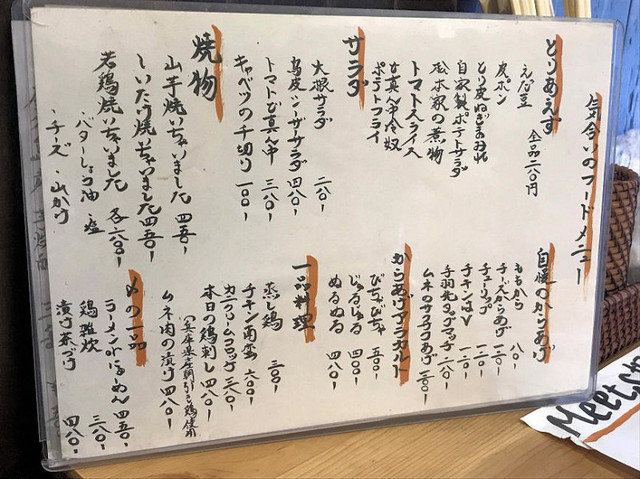 気合いのフードメニュー
とりあえず
えだ豆 全品二八〇円
皮ポン
とり皮ねぎまみれ
自家製ポテトサラダ
松本家の煮物
トマトスライス
ど真ん中冷奴
ポテトフライ
サラダ
大根サラダ 二八〇
鳥皮シーザーサラダ 四八〇-
トマトど真ん中 三八〇-
キャベツの千切り 一〇〇-
焼物
山芋焼いちゃいました 四五〇-
しいたけ焼いちゃいました 四五〇-
若鶏焼いちゃいました 各六〇〇-
・バターしょう油 ・塩
・チーズ ・山かけ
自慢のからあげ
ももから 八〇-
チーズからあげ 一二〇-
チューリップ 一二〇-
チキンはV 一二〇-
手羽先タップマッチ 一八〇-
ムネのサクサクフライ 二八〇-
からあげアラカルト
びちゃびちゃ 五〇〇-
じゅるじゅる 四八〇-
ぬるぬる 四八〇-
一品料理
蒸し鶏 三〇〇-
チキン南蛮 六〇〇-
カニクリームコロッケ 三八〇-
本日の鶏刺し 四八〇-
(兵庫県産朝引き鶏使用
ムネ肉の漬け 四八〇-
〆の一品
ラーメン 四五〇-
鶏雑炊 三八〇-
漬け茶づけ 四八〇-
Meet